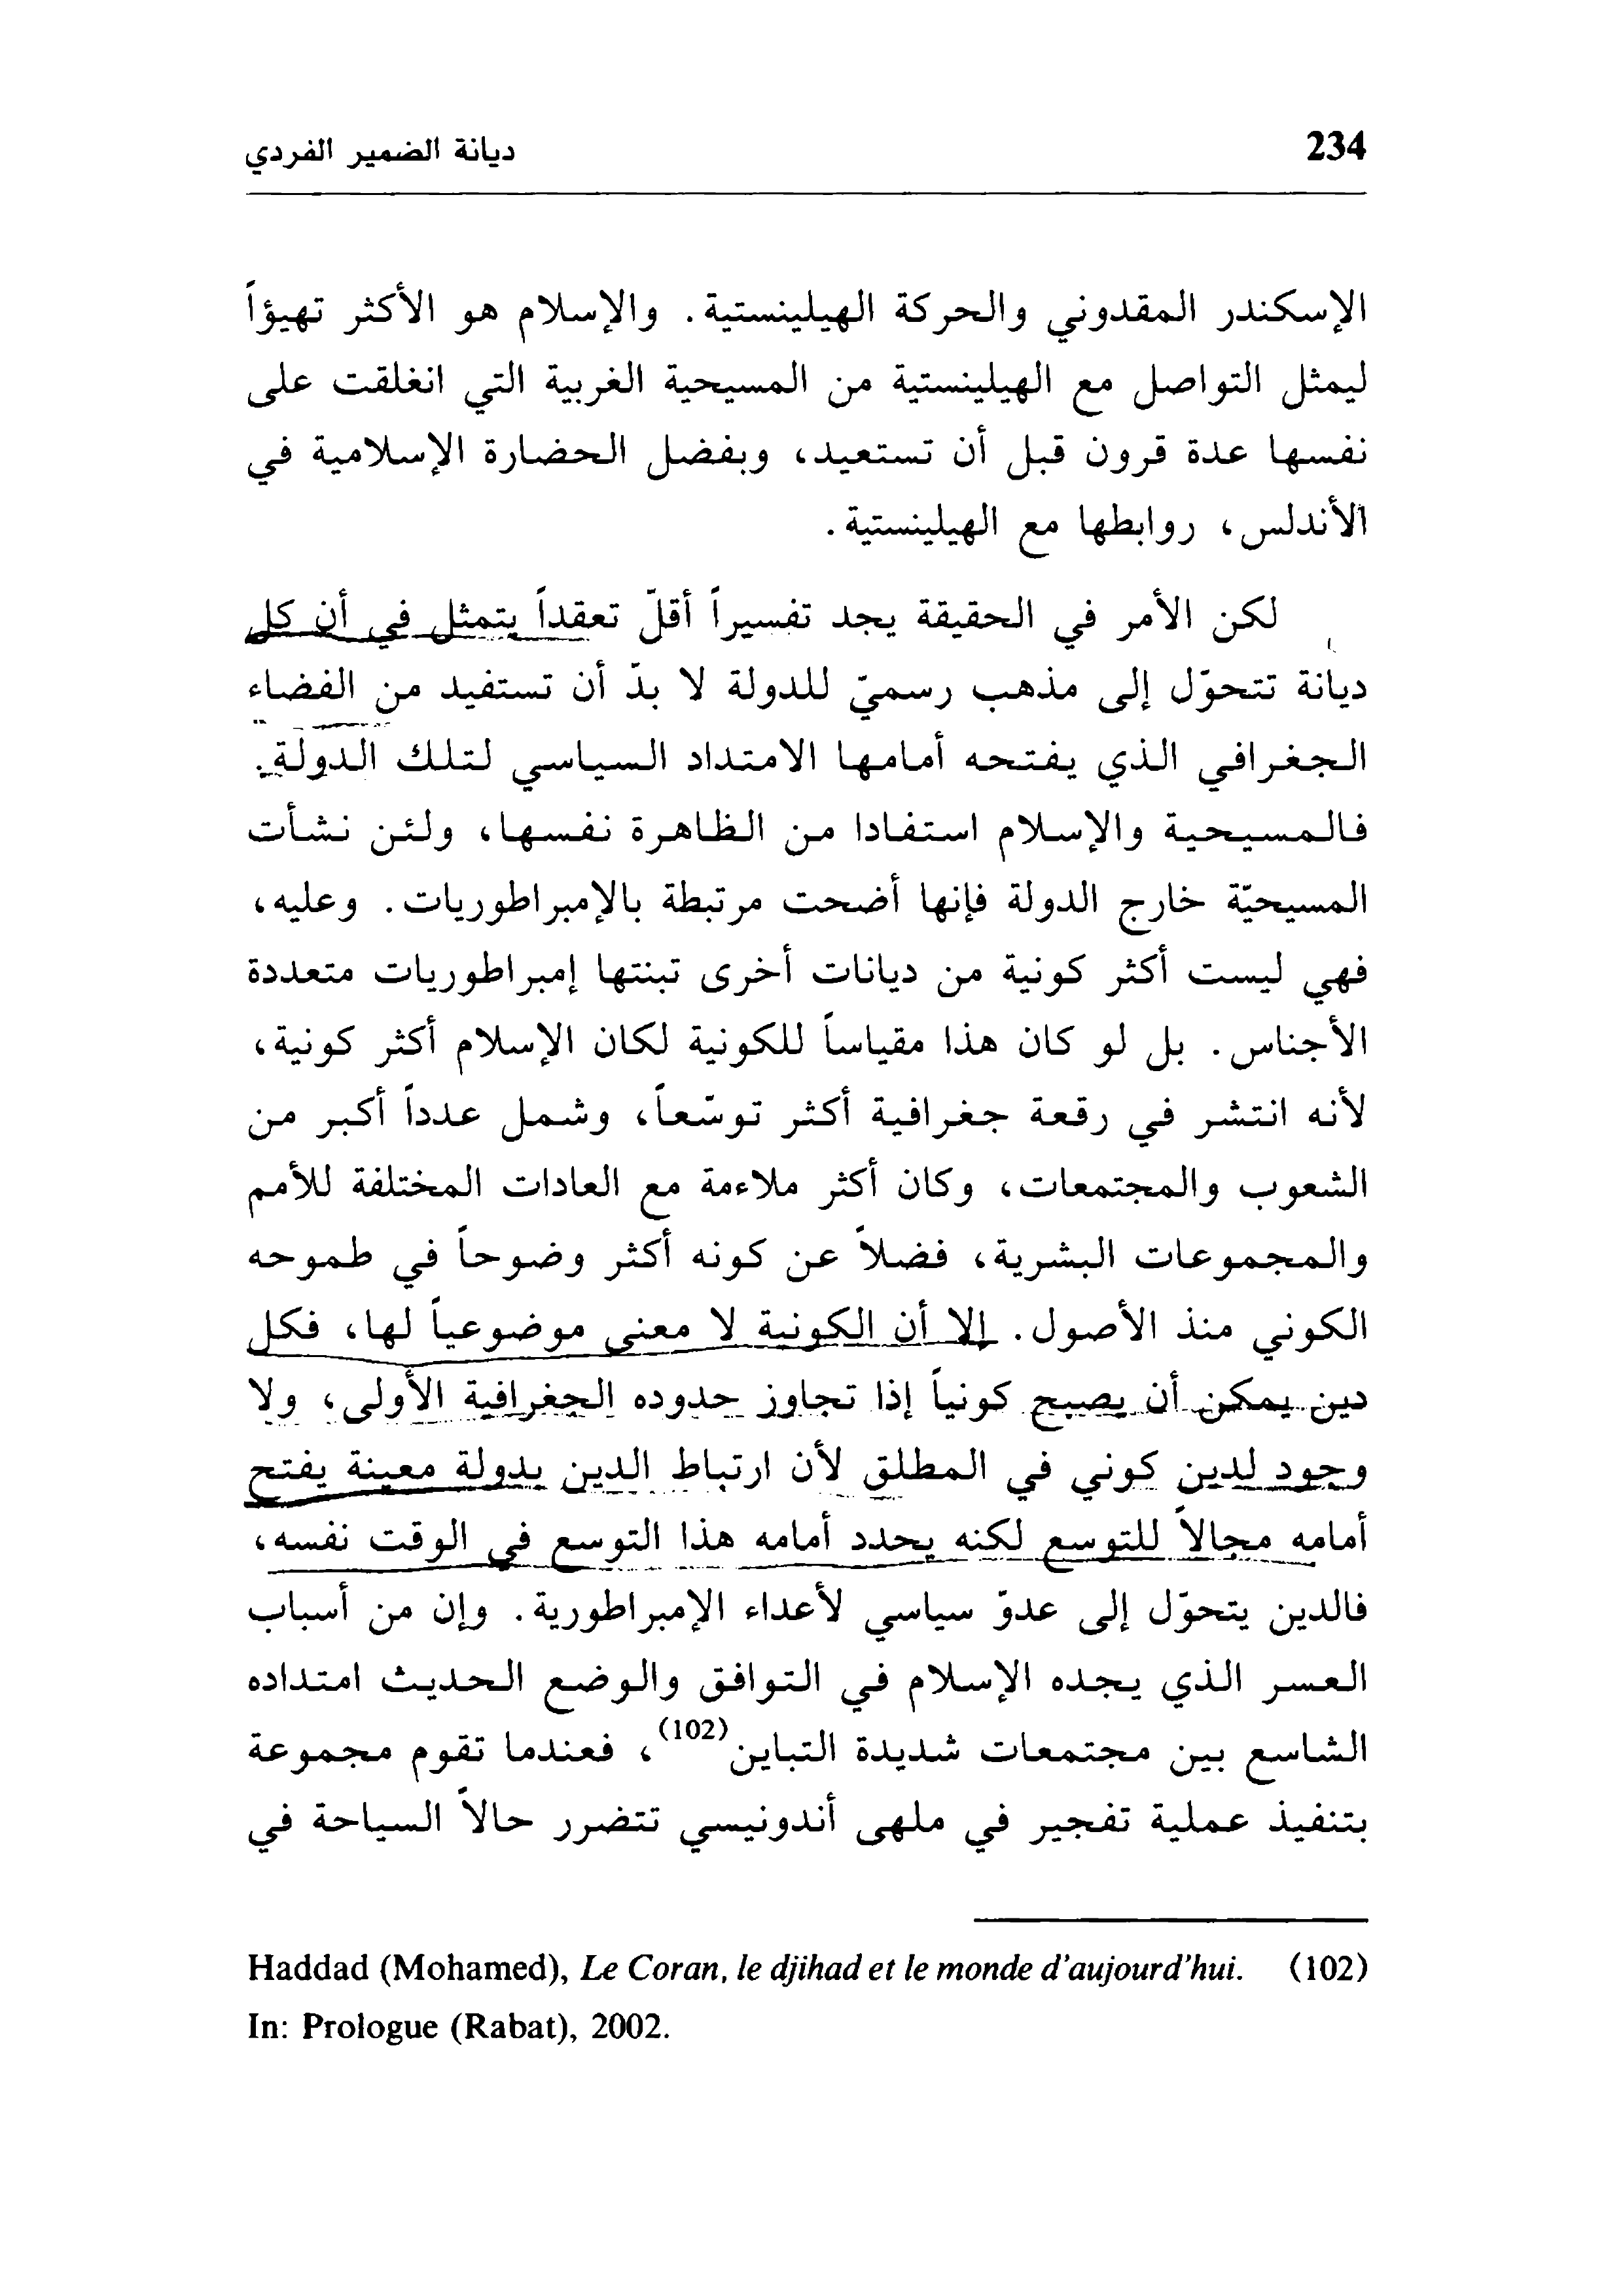 234
ديانة الضمير الفردي
الإسكندر المقدوني والحركة الهيلينستية. والإسلام هو الأكثر تهيؤاً
ليمثل التواصل مع الهيلينستية من المسيحية الغربية التي انغلقت على
نفسها عدة قرون قبل أن تستعيد، وبفضل الحضارة الإسلامية في
الأندلس، روابطها مع الهيلينستية.
لكن الأمر في الحقيقة يجد تفسيراً أقلّ تعقداً يتمثل في أن كل
ديانة تتحوّل إلى مذهب رسميّ للدولة لا بدّ أن تستفيد من الفضاء
الجغرافي الذي يفتحه أمامها الامتداد السياسي لتلك الدولة.
فالمسيحية والإسلام استفادا من الظاهرة نفسها، ولئن نشأت
المسيحيّة خارج الدولة فإنها أضحت مرتبطة بالإمبراطوريات. وعليه،
فهي ليست أكثر كونية من ديانات أخرى تبنتها إمبراطوريات متعددة
الأجناس. بل لو كان هذا مقياساً للكونية لكان الإسلام أكثر كونية،
لأنه انتشر في رقعة جغرافية أكثر توسّعاً، وشمل عدداً أكبر من
الشعوب والمجتمعات، وكان أكثر ملاءمة مع العادات المختلفة للأمم
والمجموعات البشرية، فضلاً عن كونه أكثر وضوحاً في طموحه
الكوني منذ الأصول. إلا أن الكونية لا معنى موضوعياً لها، فكل
دين يمكن أن يصبح كونياً إذا تجاوز حدوده الجغرافية الأولى، ولا
وجود لدين كوني في المطلق لأن ارتباط الدين بدولة معينة يفتح
أمامه مجالاً للتوسع لكنه يحدد أمامه هذا التوسع في الوقت نفسه،
فالدين يتحوّل إلى عدوّ سياسي لأعداء الإمبراطورية. وإن من أسباب
العسر الذي يجده الإسلام في التوافق والوضع الحديث امتداده
الشاسع بين مجتمعات شديدة التباين(102)، فعندما تقوم مجموعة
بتنفيذ عملية تفجير في ملهى أندونيسي تتضرر حالاً السياحة في
Haddad (Mohamed), Le Coran, le djihad et le monde d'aujourd'hui. (102)
In: Prologue (Rabat), 2002.